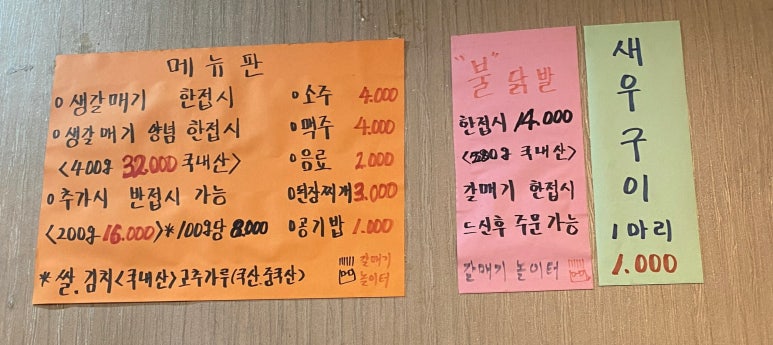 메뉴판
o 생갈매기 한접시
o 생갈매기 양념 한접시
<400g 32.000 국내산>
o 추가시 반접시 가능
<200g 16.000>*100g당 8.000
o 소주 4.000
o 맥주 4.000
o 음료 2.000
o 된장찌개 3.000
o 공기밥 1.000
* 쌀. 김치<국내산>고추가루(국산.중국산)
갈매기
놀이터
"불" 닭발
한접시 14.000
국내산>
갈매기 한접시
드신후 주문 가능
갈매기 놀이터
새우구이
1마리
1.000